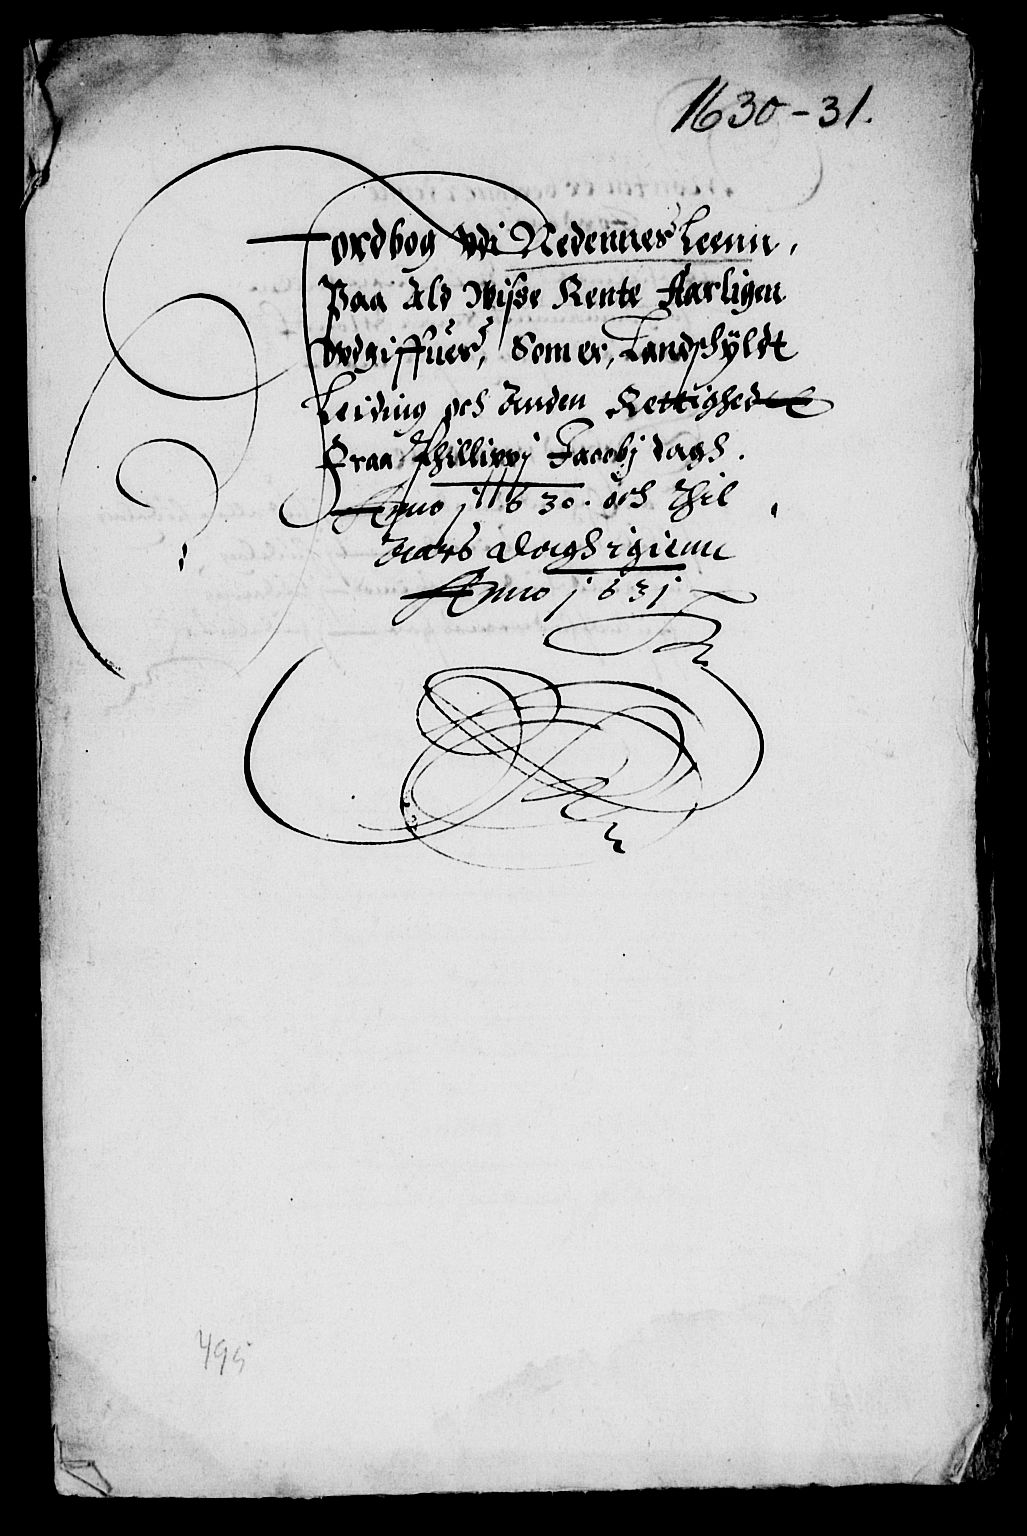 1630-31.
Jordbog vdi Nedennes Leenn,
Paa Ald Wisse Rente Aarligen
Vdgiffues, Som er, Landschyldt
Leiding och Anden Rettighed
Fraa Phillippj Jacobj dagh.
Anno j630. och Thil
Aars Dagh igienn
Anno j63j
495